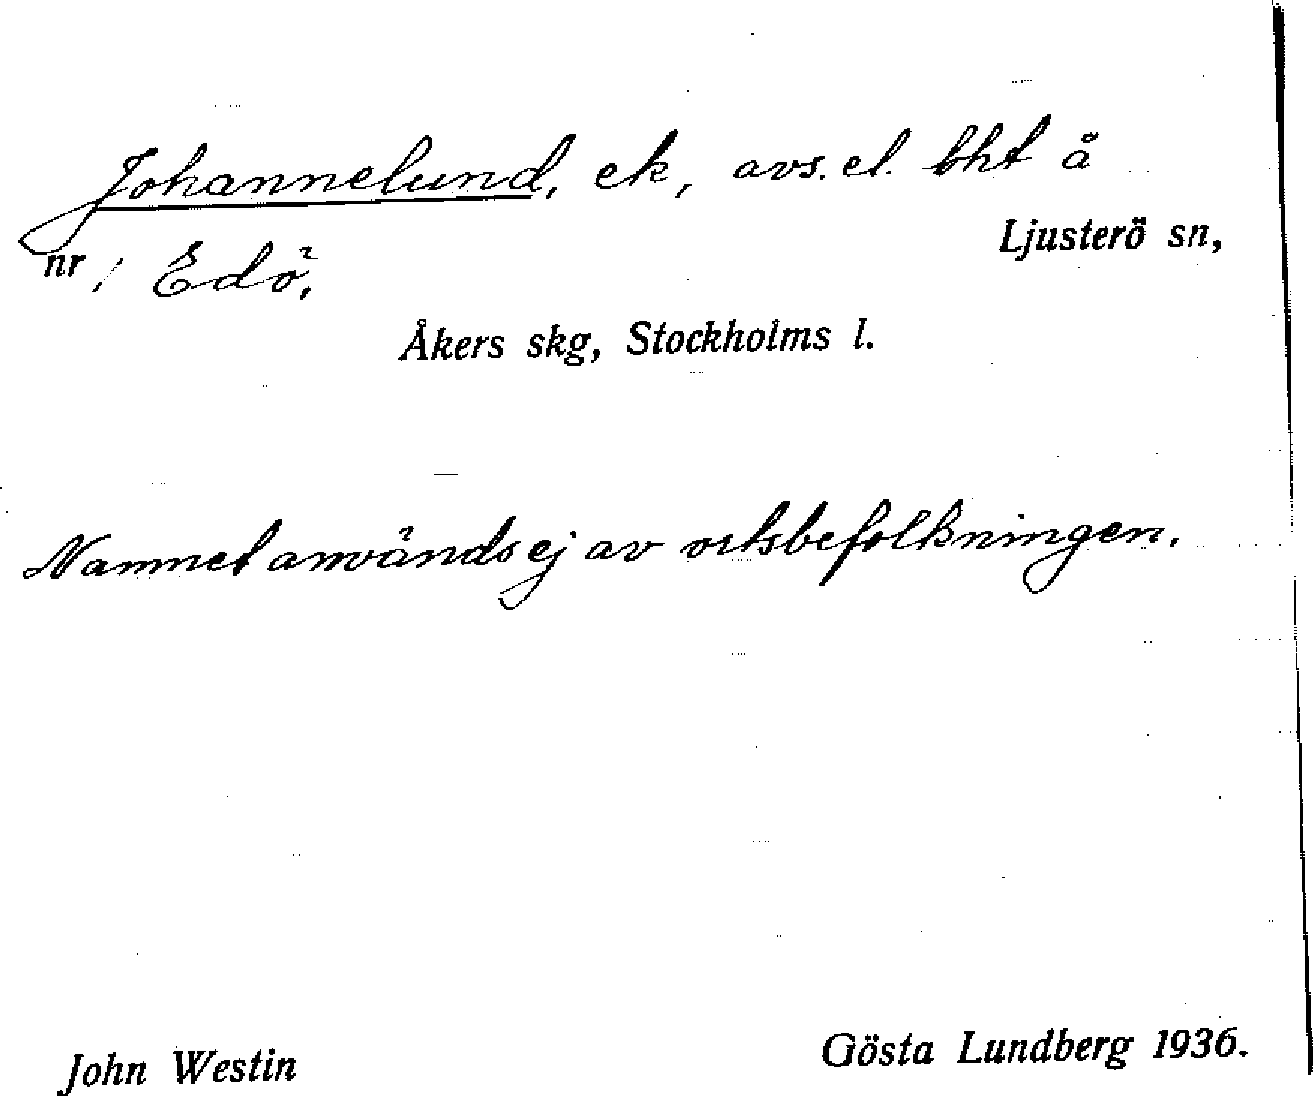 Johannelund, ek, avs. el. bht å
Ljusterö sn,
nr / Edö,
Åkers skg, Stockholms l.
Namnet användes ej av ortsbefolkningen.
John Westin
Gösta Lundberg 1936.